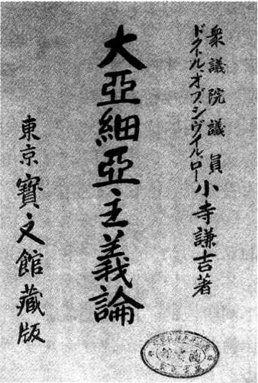 衆議院議員
ドクトル、オブ、シヴイル、ロー 小寺謙吉著
大亞細亞主義論
東京 寶文館藏版